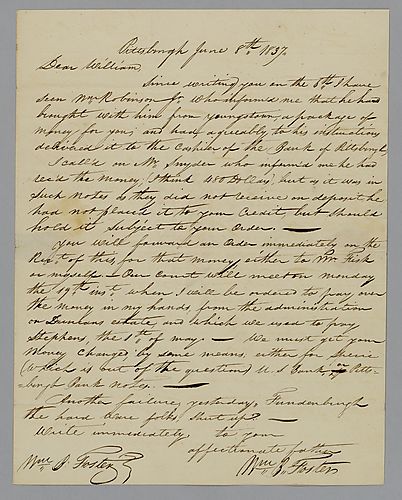 Pittsburgh June 8th. 1837.
Dear William,
Since writing you on the 6th I have
seen Mr Robinson Jr. who informed me that he had
brought with him from youngstown, a package of
money for you; and had agreeably to his instructions
delivered it to the Cashier of the Bank of Pittsburgh,
I call'd on Mr. Snyder who informed me he had
rec'd the money (I think 480 Dollars), but as it was in
such Notes as they did not receive on deposit he
had not placed it to your Credit, but should
hold it subject to your order. —
You will forward an order immediately on the
Rect. of this, for that money, either to Wm Fisk
or myself — Our Court will meet on monday
the 19th inst. when I will be ordered to pay over
the money in my hands, from the administration
on Duncans estate, and which we used to pay
Stephens, the 1st of may. — We must get your
Money Changed by some means, either for Specie
(Which is out of the question) U. S. Bank, or Pitts-
burgh Bank Notes. —
Another failure, yesterday, Fundenburgh
the hard Ware folks, Shut up? —
Write immediately to your
affectionate father
Wm. B. Foster
Wm. B. Foster